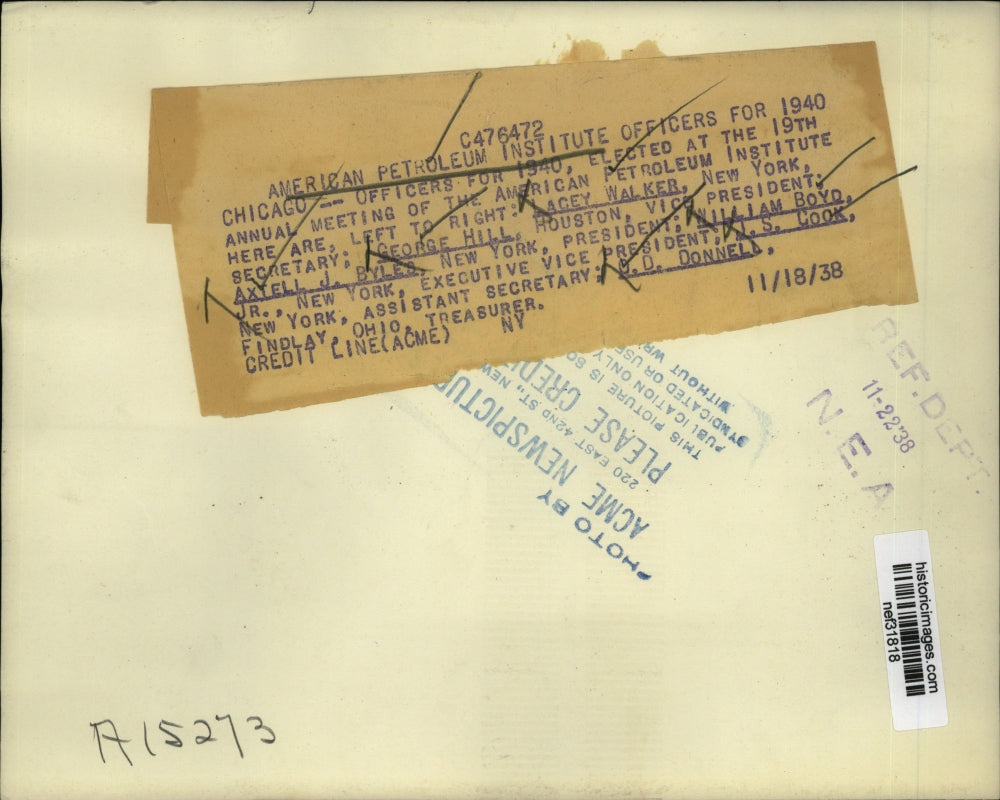 C476472
AMERICAN PETROLEUM INSTITUTE OFFICERS FOR 1940
CHICAGO -- OFFICERS FOR 1940, ELECTED AT THE 19TH
ANNUAL MEETING OF THE AMERICAN PETROLEUM INSTITUTE
HERE ARE, LEFT TO RIGHT: LACEY WALKER, NEW YORK,
SECRETARY; GEORGE HILL, HOUSTON, VICE PRESIDENT;
AXTELL J. BYLES, NEW YORK, PRESIDENT; WILLIAM BOYD,
JR., NEW YORK, EXECUTIVE VICE PRESIDENT; S. COOK,
NEW YORK, ASSISTANT SECRETARY; D. DONNELL,
FINDLAY, OHIO, TREASURER.
CREDIT LINE(ACME) NY 11/18/38
PHOTO BY
ACME NEWSPICTU
220 EAST 42ND ST., NEW
PLEASE CREDI
THIS PICTURE IS SO
PUBLICATION ONLY
SYNDICATED OR USE
WITHOUT WR
REF. DEPT.
11-22'38
N. E. A
historicimages.com
nef31818
A15273